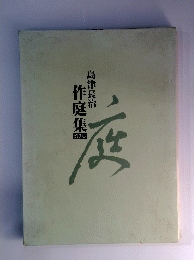 島津長治
作庭集
庭